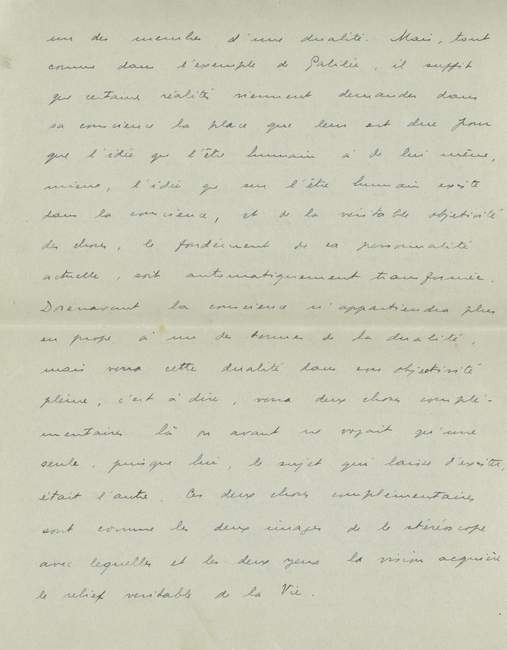 un des membres d'une dualité. Mais, tout
comme dans l'exemple de Galilée, il suffit
que certaine réalités viennent demander dans
sa conscience la place que leur est due pour
que l'idée que l'être humain a de lui même,
mieux, l'idée que sur l'être humain existe
dans la conscience, et de la véritable objetivité
des choses, le fondément de sa personnalité
actuelle, soit automatiquement transformée.
Dorenavant la conscience n'appartiendra plus
en propre à un des termes de la dualité,
mais verra cette dualité dans son objectivité
pleine, c'est à dire, verra deux choses complé-
mentaires là ou avant ne voyait qu'une
seule, puisque lui, le sujet qui laisse d'exister,
était l'autre. Ces deux choses complémentaires
sont comme les deux images de le stéréoscope
avec lequelles et les deux yeux la vision acquière
le relief veritable de la Vie.